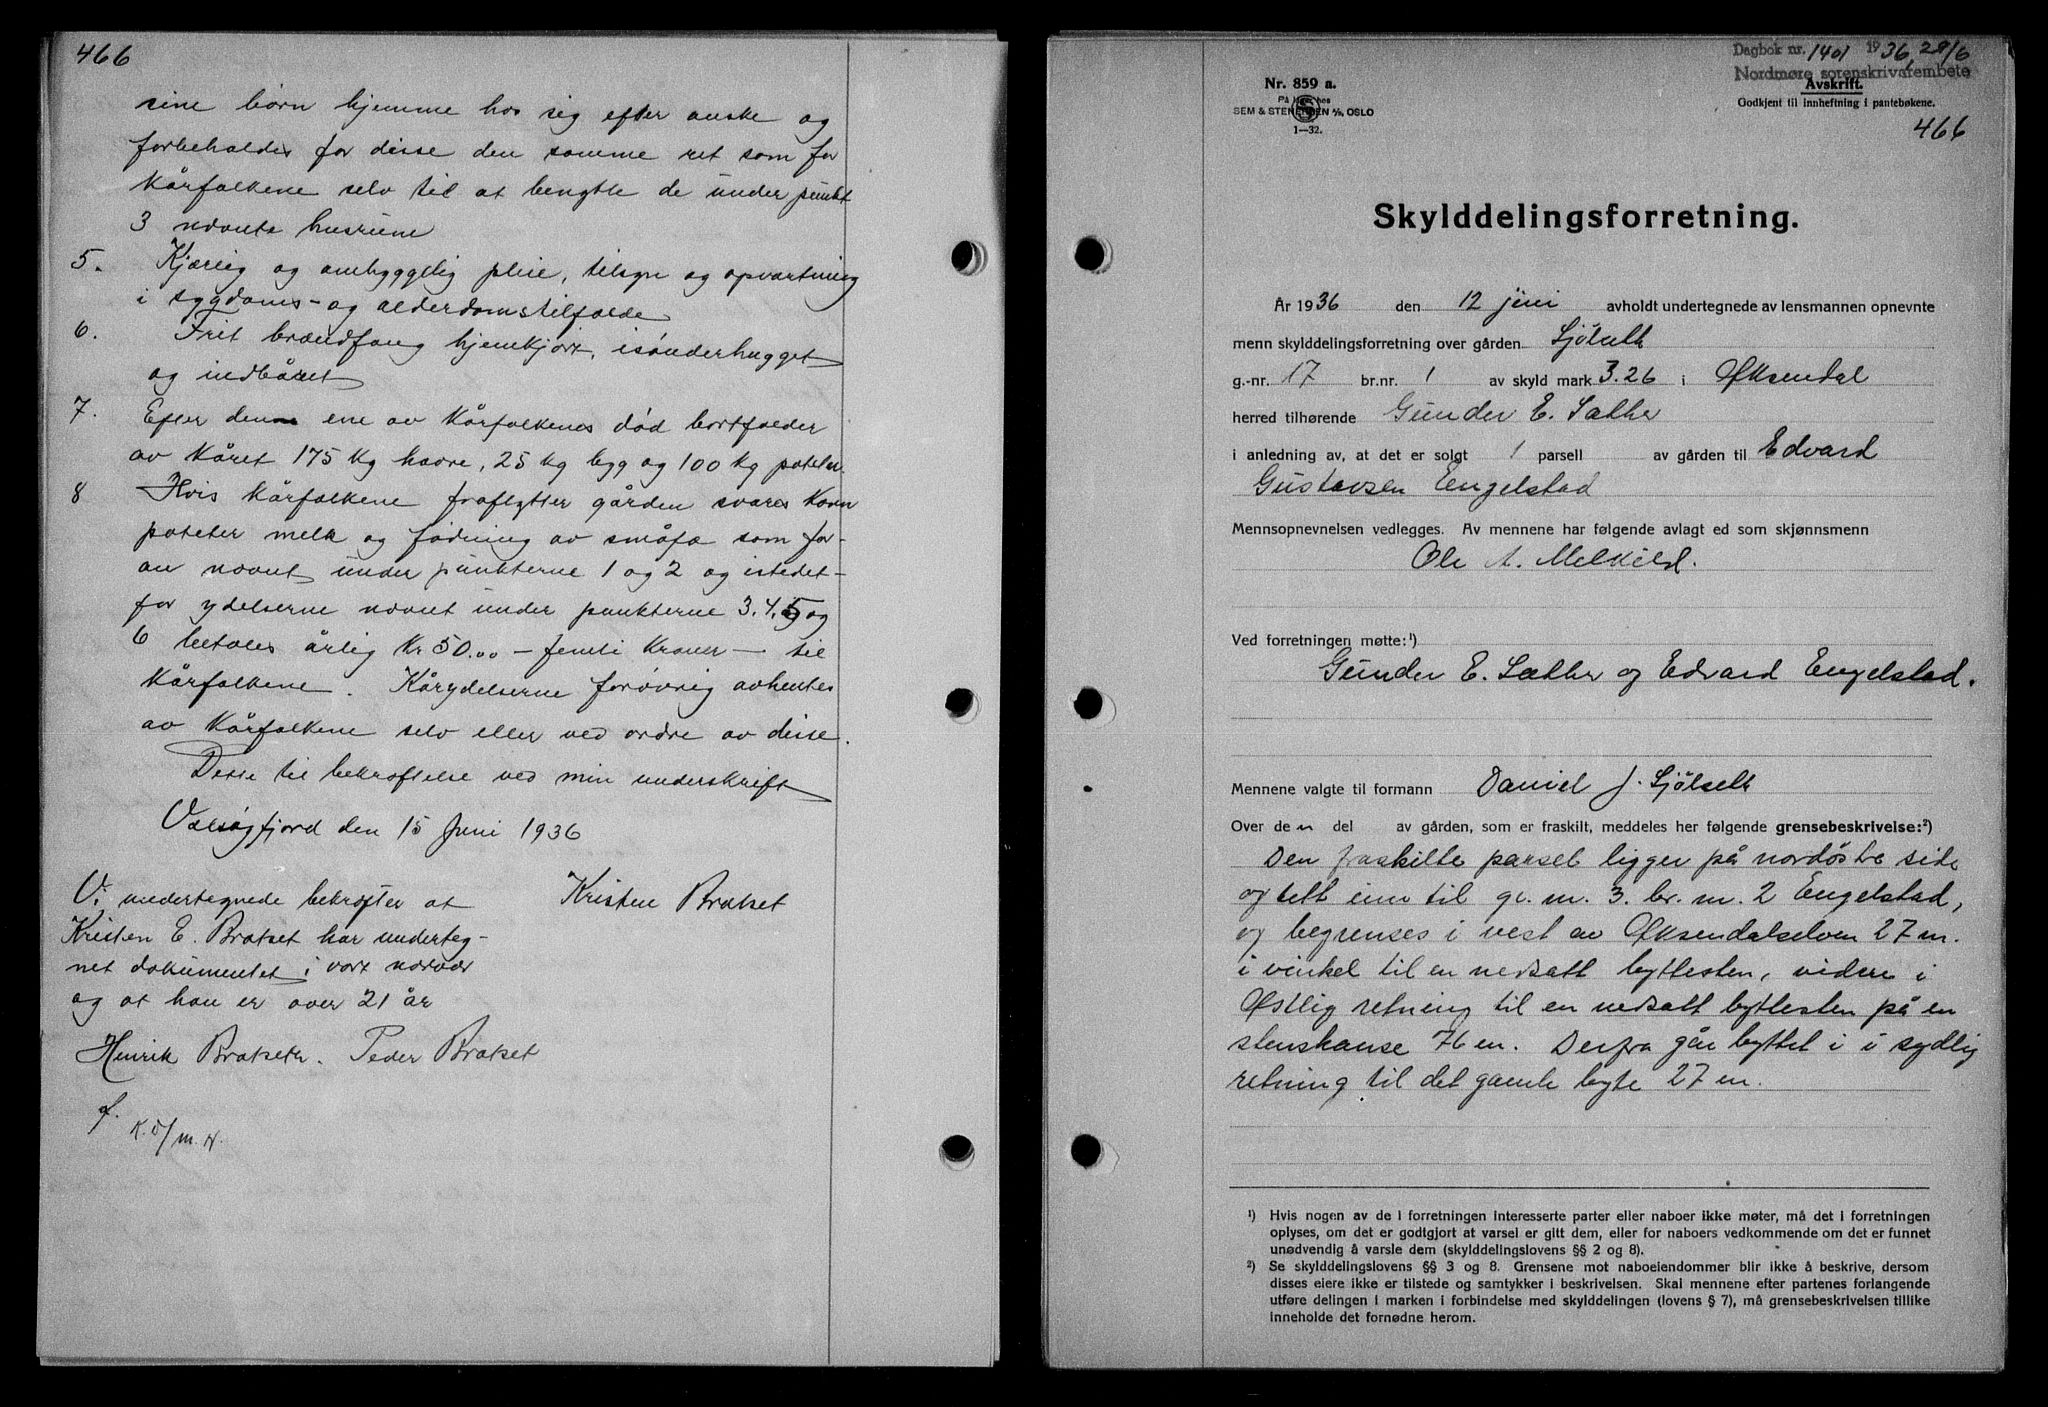 466
sine børn hjemme hos sig efter ønske og
forbeholdes for disse den samme ret som for
kårfolkene selv til at benytte de under punkt
3 nævnte husrum
5. Kjærlig og omhyggelig pleie, tilsyn og opvartning
i sygdoms- og alderdomstilfælde
6. Frit brændfang hjemkjørt, isønderhugget
og indbåret
7. Efter den ene av kårfolkenes død bortfalder
av kåret 175 kg havre, 25 kg bygg og 100 kg poteter.
8 Hvis kårfolkene fraflytter gården svares korn
poteter melk og fødning av småfæ som for-
an nævnt under punkterne 1 og 2 og istedet-
for ydelserne nævnt under punkterne 3. 4. 5 og
6 betales årlig Kr 50.00 - femti kroner - til
kårfolkene. Kårydelserne forøvrig avhentes
av kårfolkene selv eller ved ordre av disse.
Dette til bekræftelse ved min underskrift
Valsøyfjord den 15 Juni 1936
Kristen Bratset
Vi undertegnede bekræfter at
Kristen E. Bratset har underteg-
net dokumentet i vort nærvær
og at han er over 21 år
Henrik Bratseth. Peder Bratset
K. D/ m. N.
Dagbok nr. 1401 1936 29/6
Nordmøre sorenskriverembete
Nr. 859 a.
SEM & STENERSEN A/S, OSLO
1—32.
Avskrift.
Godkjent til innheftning i pantebøkene.
466
Skylddelingsforretning.
År 1936 den 12 juni avholdt undertegnede av lensmannen opnevnte
menn skylddelingsforretning over gården Sjølseth
g.-nr. 17 br.nr. 1 av skyld mark 3.26 i Øksendal
herred tilhørende Gunder E. Sæther
i anledning av, at det er solgt 1 parsell av gården til Edvard
Gustavsen Engelstad
Mennsopnevnelsen vedlegges. Av mennene har følgende avlagt ed som skjønnsmenn
Ole A. Melkild.
Ved forretningen møtte:¹)
Gunder E. Sæther og Edvard Engelstad.
Mennene valgte til formann Daniel J. Sjølseth
Over den del av gården, som er fraskilt, meddeles her følgende grensebeskrivelse:²)
Den fraskilte parsel ligger på nordøstre side
og tett inn til gr. nr. 3. br. nr. 2 Engelstad,
og begrenses i vest av Øksendalselven 27 m.
i vinkel til en nedsatt byttesten, videre i
Østlig retning til en nedsatt byttesten på en
stenskanse 76 m. Derfra går byttet i i sydlig
retning til det gamle byte 27 m.
¹) Hvis nogen av de i forretningen interesserte parter eller naboer ikke møter, må det i forretningen
oplyses, om det er godtgjort at varsel er gitt dem, eller for naboers vedkommende om det er funnet
unødvendig å varsle dem (skylddelingslovens §§ 2 og 8).
²) Se skylddelingslovens §§ 3 og 8. Grensene mot naboeiendommer blir ikke å beskrive, dersom
disses eiere ikke er tilstede og samtykker i beskrivelsen. Skal mennene efter partenes forlangende
utføre delingen i marken i forbindelse med skylddelingen (lovens § 7), må grensebeskrivelsen tillike
inneholde det fornødne herom.